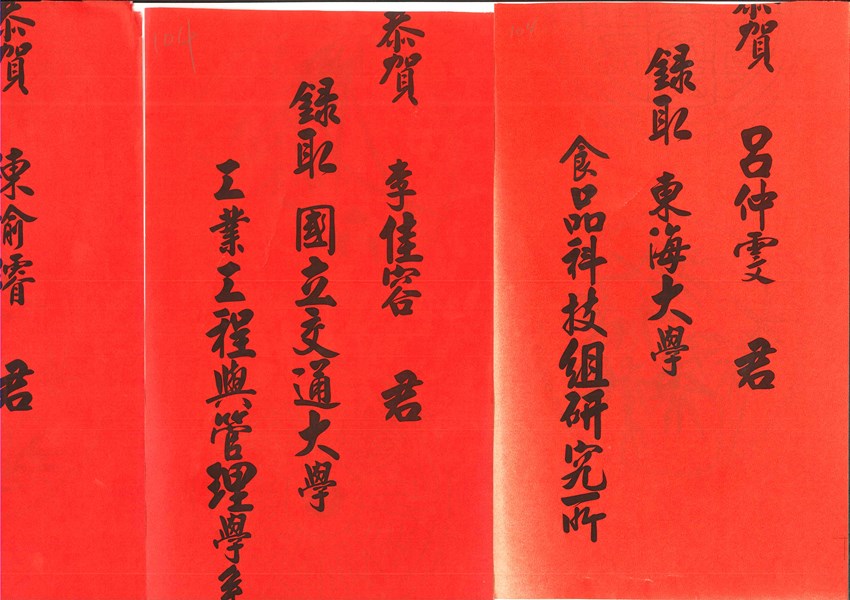 恭賀 呂仲雯 君
録取 東海大學
食品科技組研究所
恭賀 李佳容 君
録取 國立交通大學
工業工程與管理學系
恭賀 陳俞瑨 君